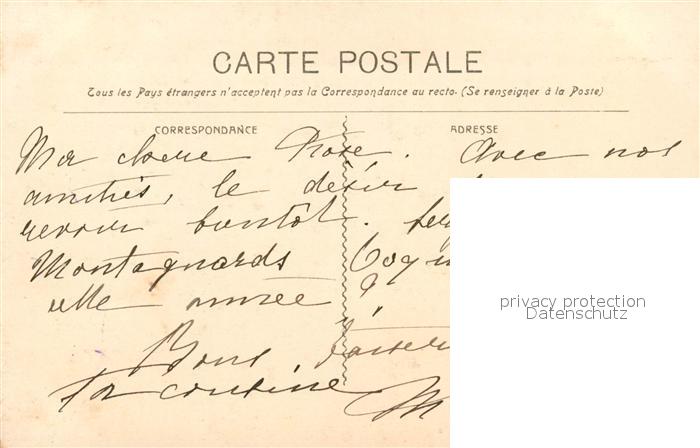 CARTE POSTALE
Tous les Pays étrangers n'acceptent pas la Correspondance au recto. (Se renseigner à la Poste)
CORRESPONDANCE
ADRESSE
Ma chere Rose. Avec nos
amitiés, le désir
revoir bientôt.
Montagnards
elle année ?
Bons
Ta cousine
M
privacy protection
Datenschutz